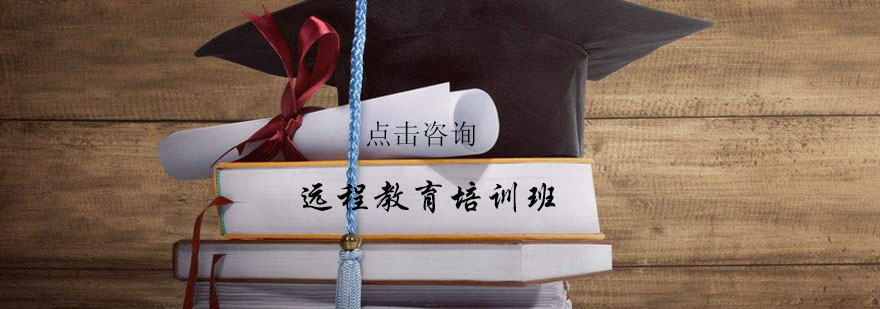 点击咨询
远程教育培训班